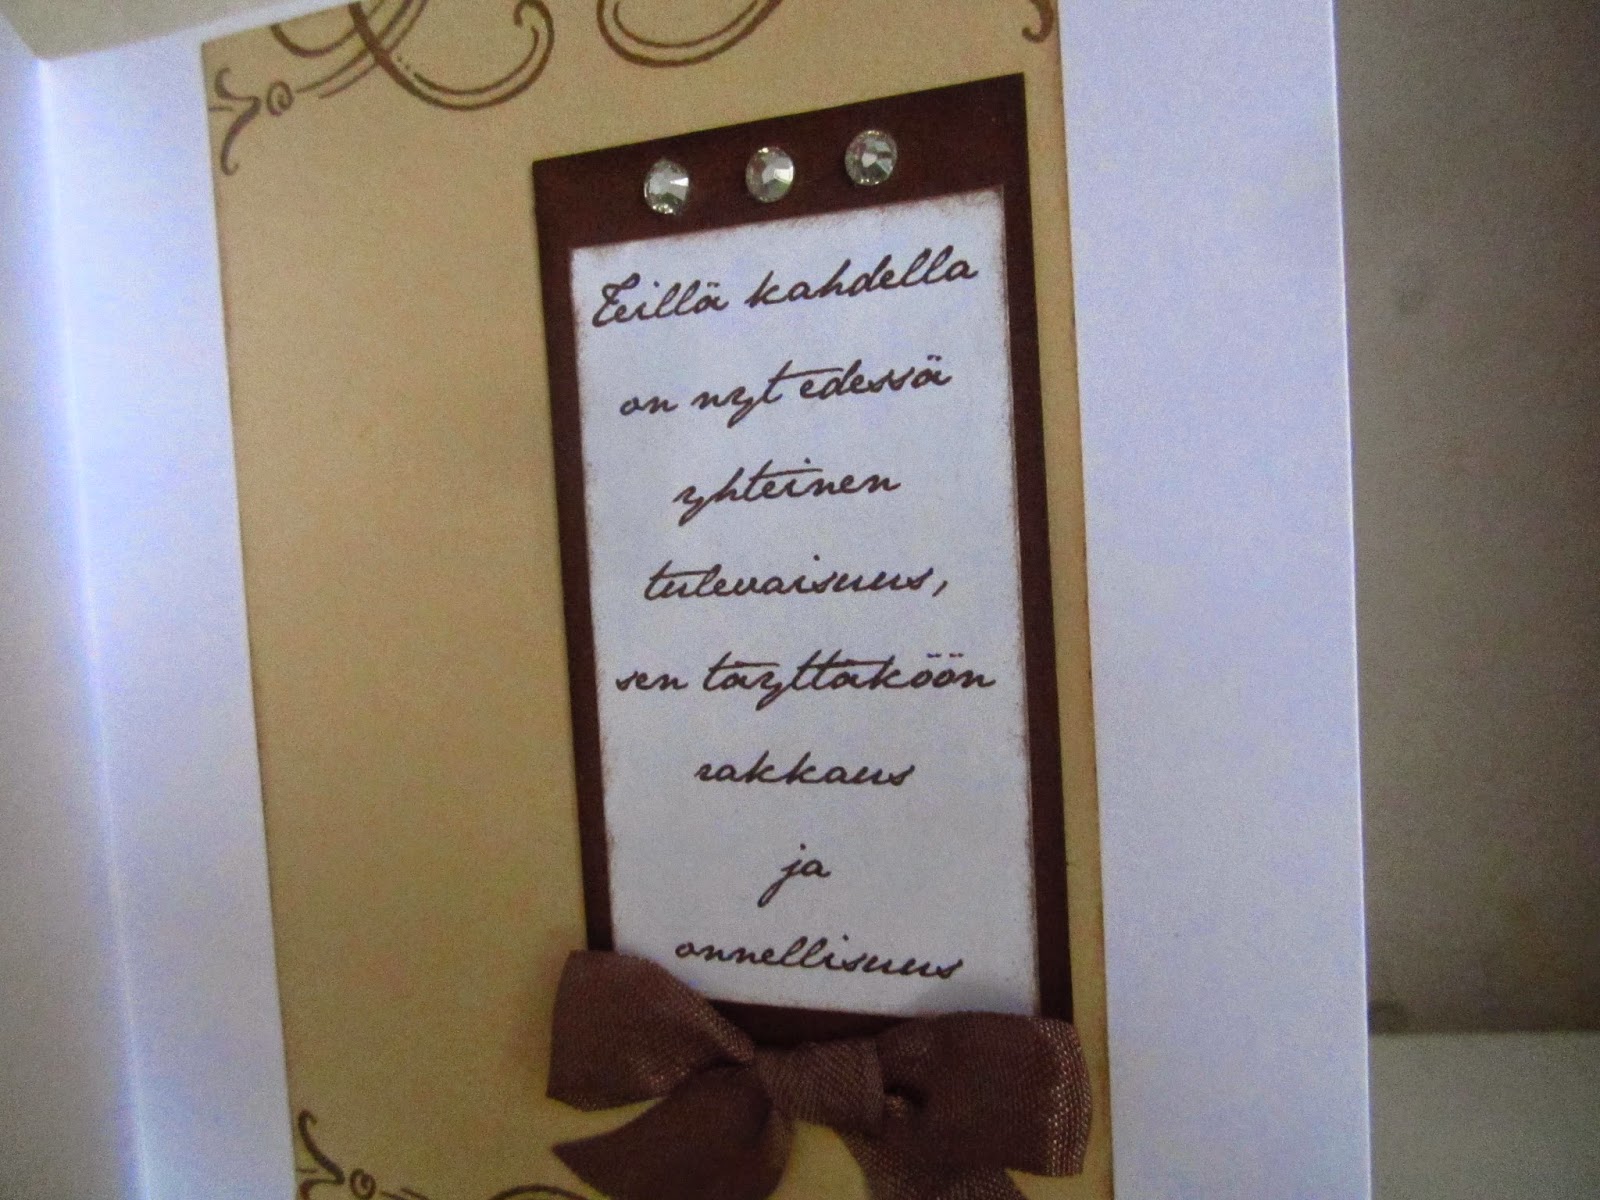 Teillä kahdella
on nyt edessä
yhteinen
tulevaisuus,
sen täyttäköön
rakkaus
ja
onnellisuus